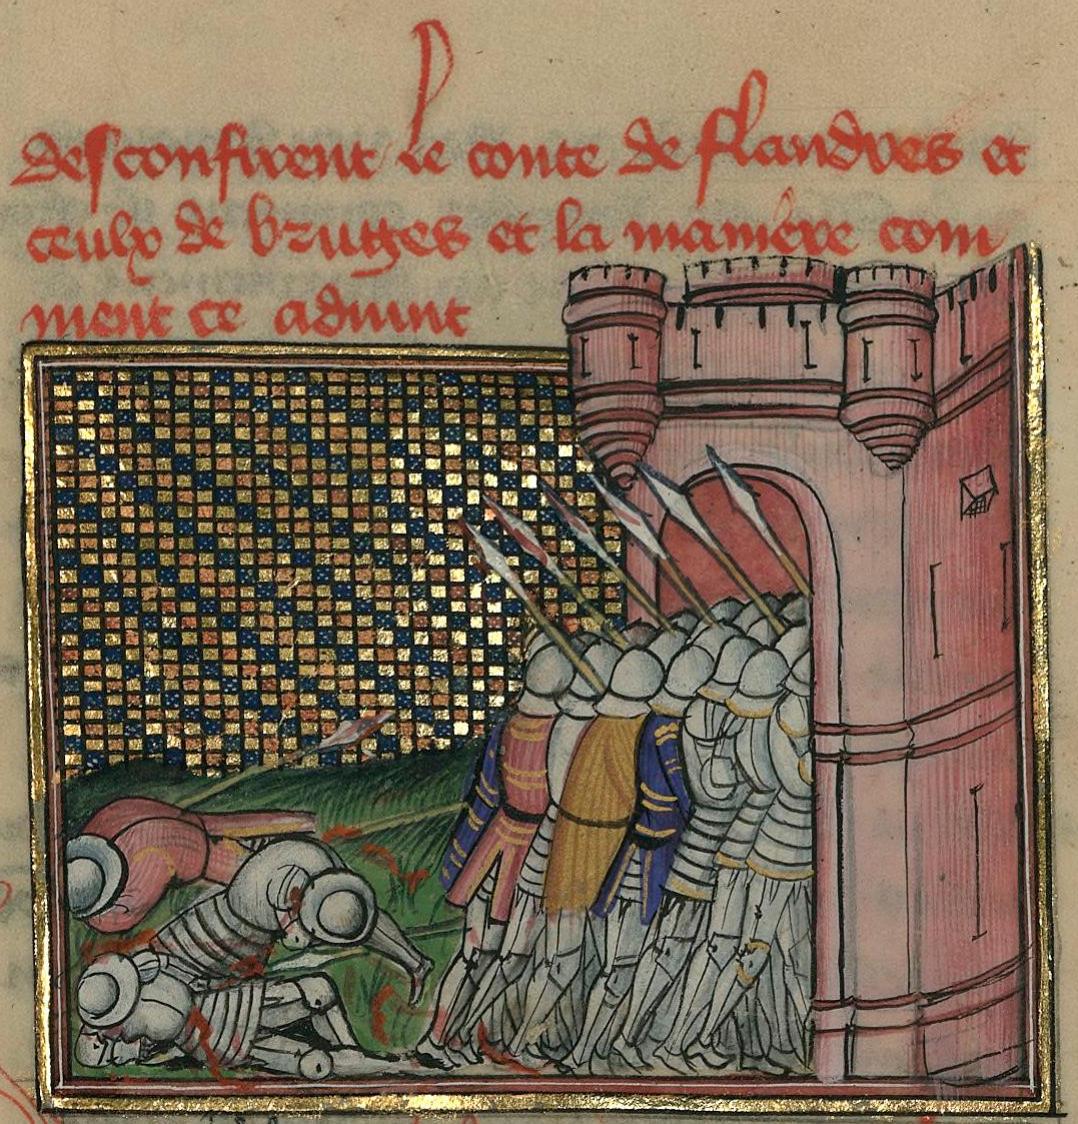 desconfirent le conte de flandres et
ceulx de bruges et la maniere com
ment ce aduint